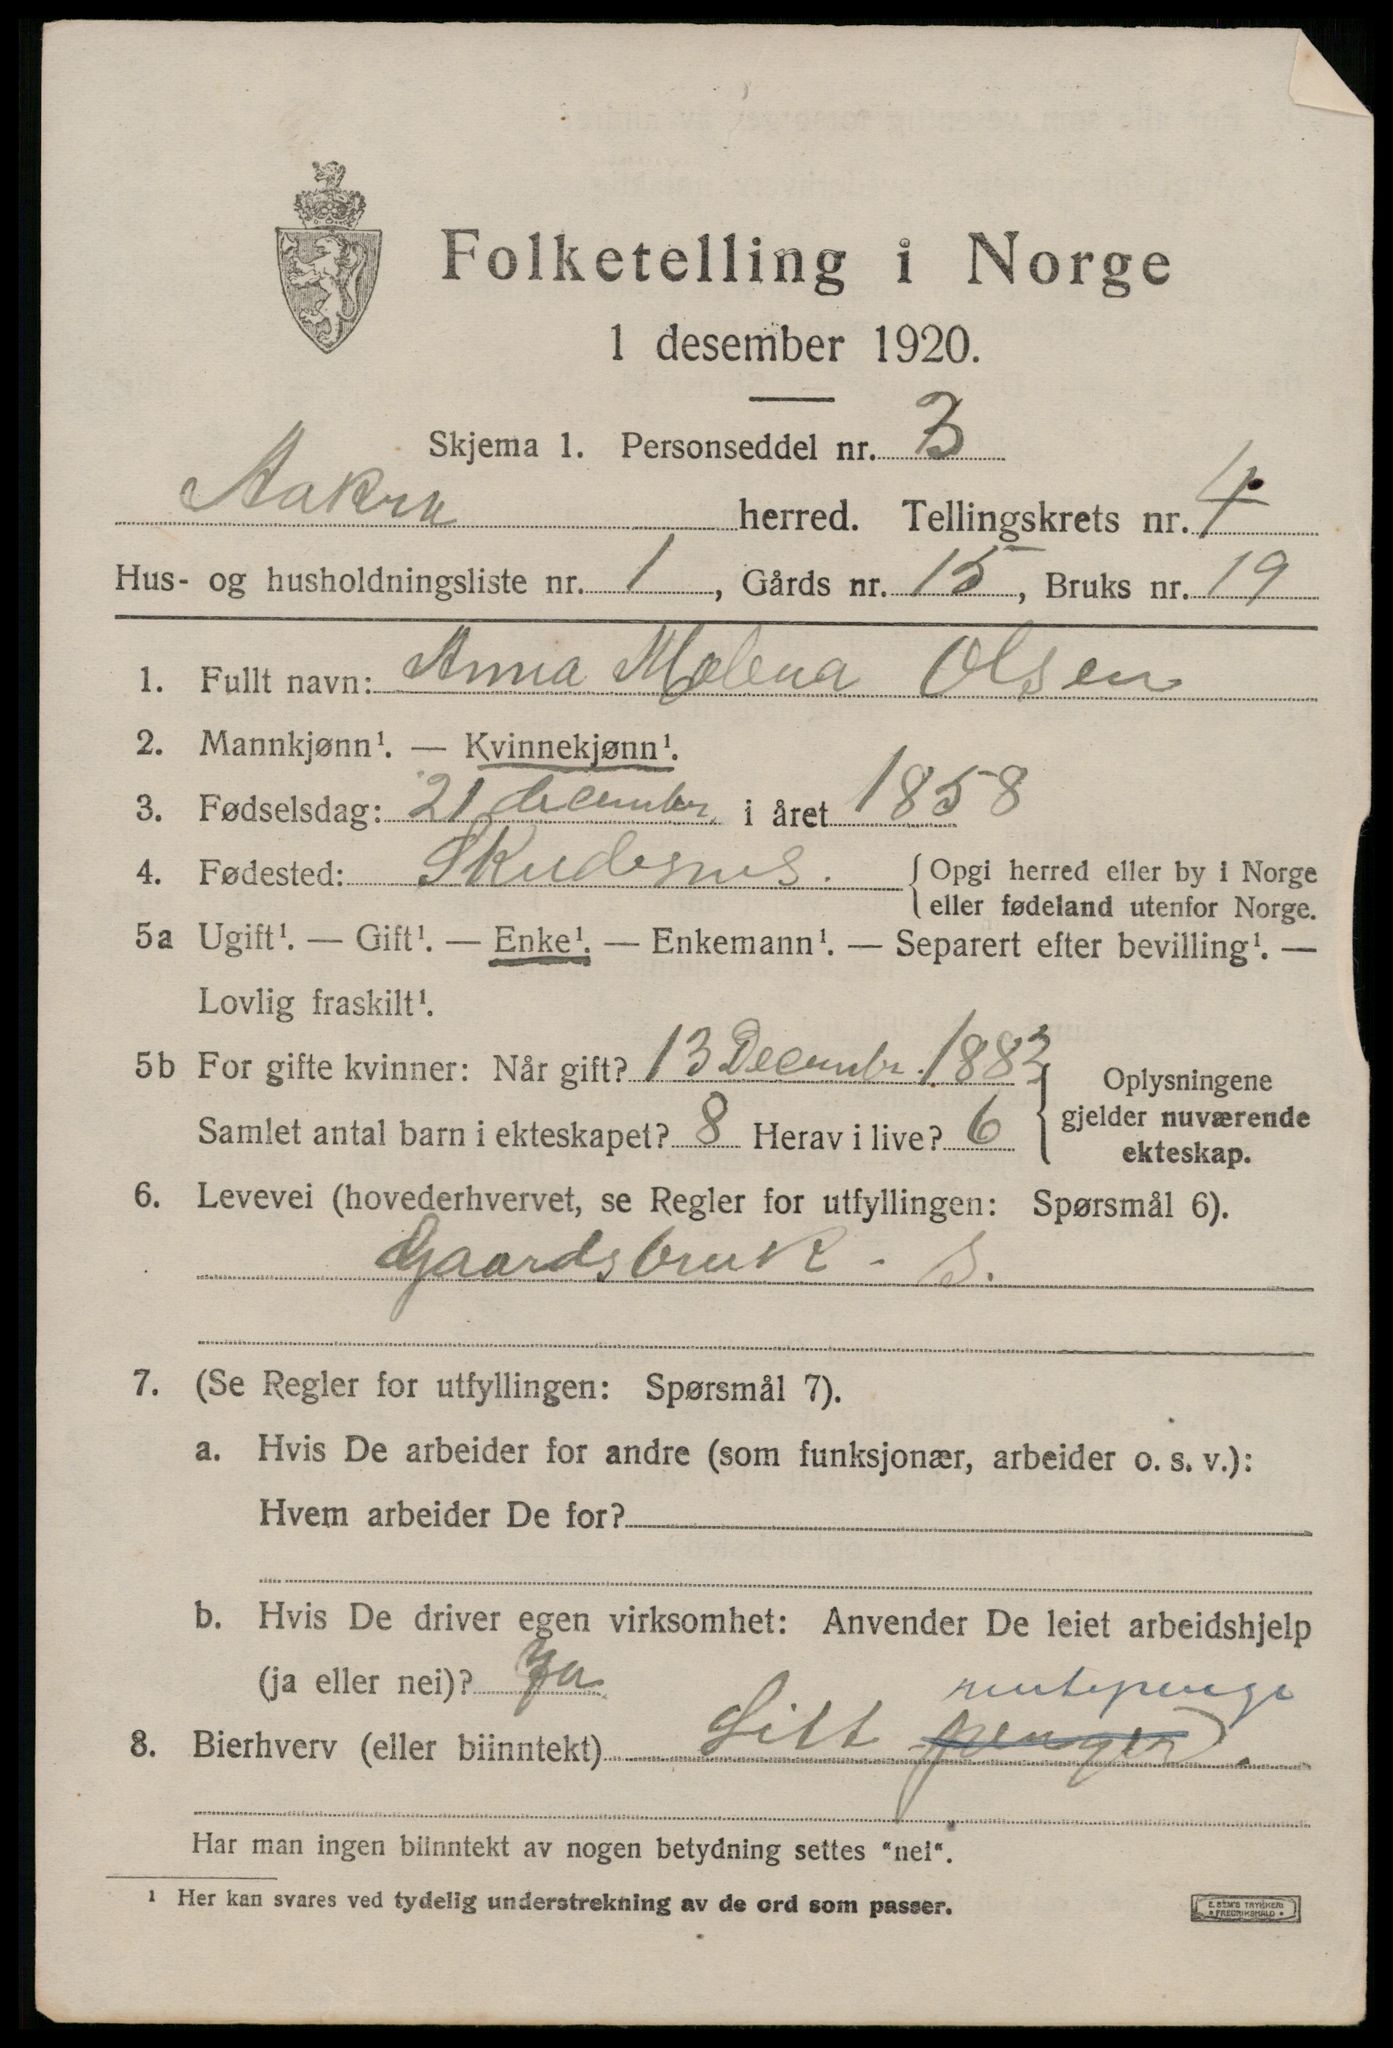 Folketelling i Norge
1 desember 1920.
Skjema 1. Personseddel nr. 3
Aakra herred. Tellingskrets nr. 4
Hus- og husholdningsliste nr. 1, Gårds nr. 15, Bruks nr. 19
1. Fullt navn: Anna Malena Olsen
2. Mannkjønn¹. — Kvinnekjønn¹.
3. Fødselsdag: 21 december i året 1858
4. Fødested: Skudesnes. { Opgi herred eller by i Norge
eller fødeland utenfor Norge.
5a Ugift¹. — Gift¹. — Enke¹. — Enkemann¹. — Separert efter bevilling¹. —
Lovlig fraskilt¹.
5b For gifte kvinner: Når gift? 13 Decembr. 1883
Samlet antal barn i ekteskapet? 8 Herav i live? 6
} Oplysningene
gjelder nuværende
ekteskap.
6. Levevei (hovederhvervet, se Regler for utfyllingen: Spørsmål 6).
Gaardsbruk - S.
7. (Se Regler for utfyllingen: Spørsmål 7).
a. Hvis De arbeider for andre (som funksjonær, arbeider o. s. v.):
Hvem arbeider De for?
b. Hvis De driver egen virksomhet: Anvender De leiet arbeidshjelp
(ja eller nei)? Ja
rentepenge
8. Bierhverv (eller biinntekt) Litt penger.
Har man ingen biinntekt av nogen betydning settes "nei".
¹ Her kan svares ved tydelig understrekning av de ord som passer.
E. SEM'S TRYKKERI
FREDRIKSHALD